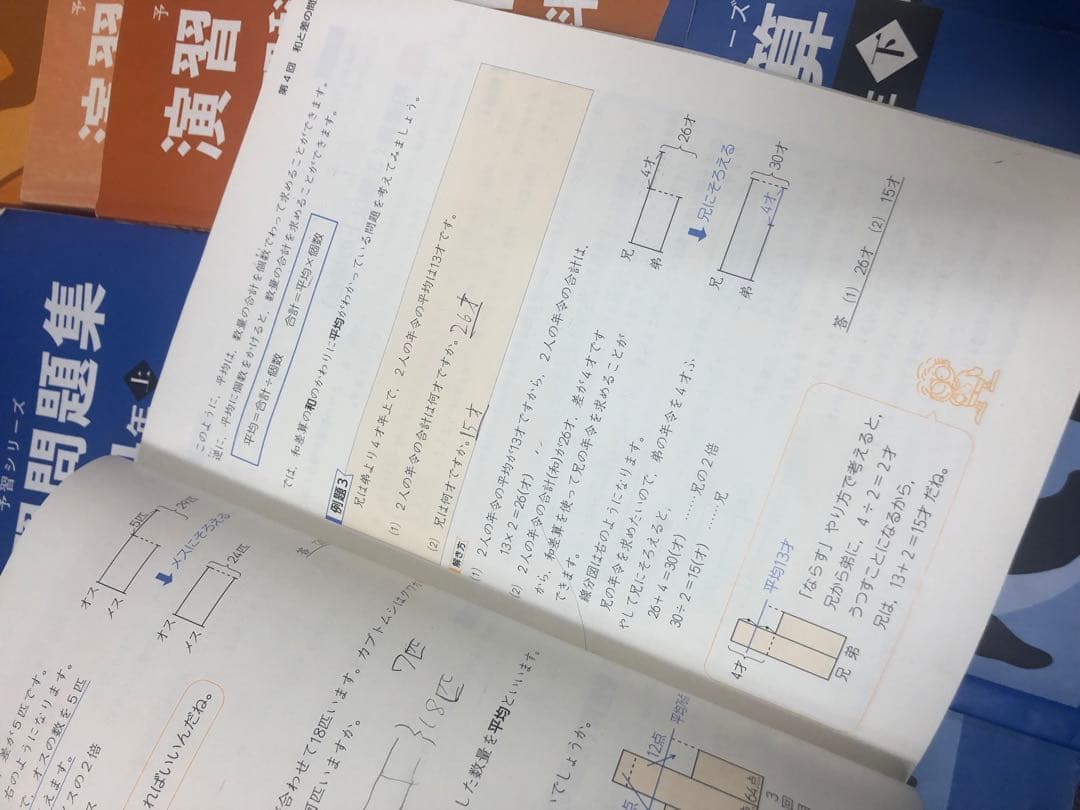 予習シリーズ
演習
演習
問題集
4年
上
算
下
第4回 和と差の問
このように、平均は、数量の合計を個数でわって求めることができます。
逆に、平均に個数をかけると、数量の合計を求めることができます。
平均=合計÷個数 合計=平均×個数
では、和差算の和のかわりに平均がわかっている問題を考えてみましょう。
例題3
兄は弟より4才年上で、2人の年令の平均は13才です。
(1) 2人の年令の合計は何才ですか。26才
(2) 兄は何才ですか。15才
解き方
(1) 2人の年令の平均が13才ですから、2人の年令の合計は、
13×2=26(才)
(2) 2人の年令の合計(和)が26才、差が4才です
から、和差算を使って兄の年令を求めることが
できます。
線分図は右のようになります。
兄の年令を求めたいので、弟の年令を4才ふ
やして兄にそろえると、
26+4=30(才) ……兄の2倍
30÷2=15(才) ……兄
兄
弟
4才
26才
兄にそろえる
兄
弟
4才
30才
答 (1) 26才 (2) 15才
4才
平均13才
兄 弟
「ならす」やり方で考えると、
兄から弟に、4÷2=2才
うつすことになるから、
兄は、13+2=15才だね。
差が5匹です。
右のようになります。
で、オスの数を5匹
えます。
スの2倍
オス
メス
5匹
24匹
メスにそろえる
オス
メス
24匹
ればいいんだね。
合わせて18匹います。カブトムシはクワガ
何匹いますか。
7匹
18匹
した数量を平均といいます。
いでしょうか。
12点
平均点
64点
3回目